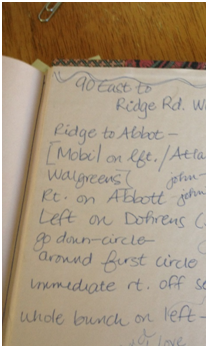 90 East to
Ridge Rd. W
Ridge to Abbot-
[Mobil on lft./Atla
Walgreens] john-
Rt. on Abbott john
Left on Dohrens (
go down-circle-
around first circle
immediate rt. off se
whole bunch on left-
love